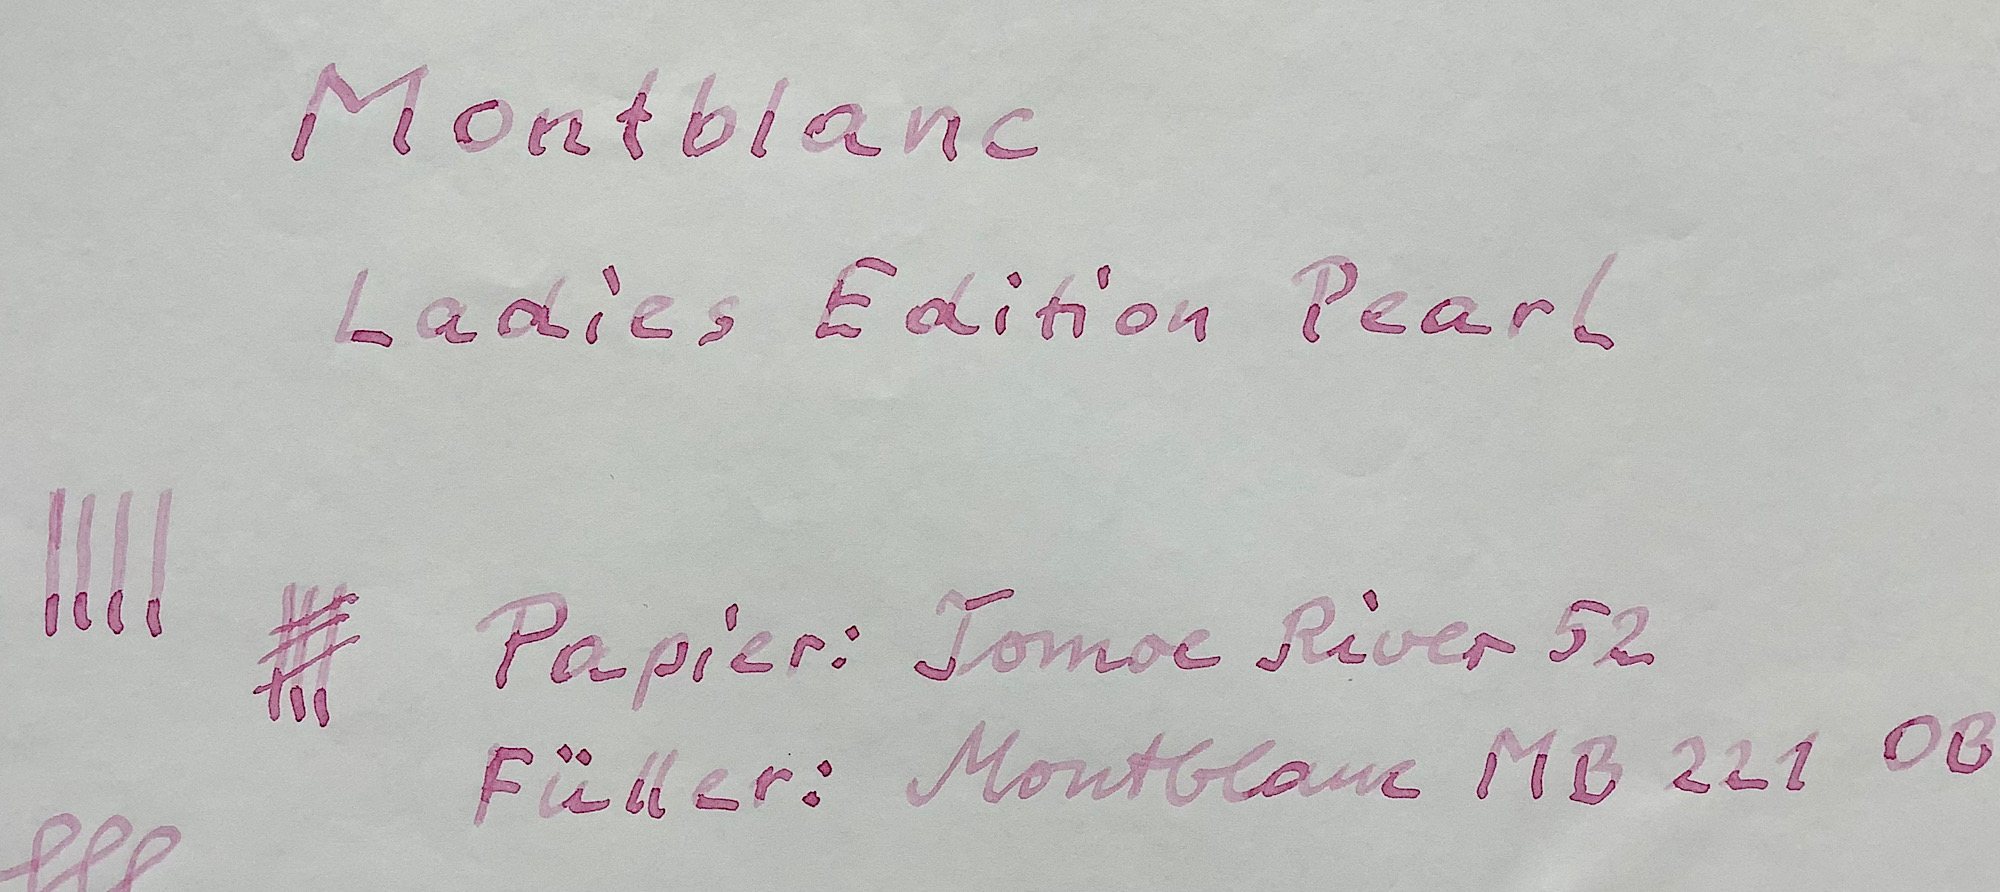 Montblanc
Ladies Edition Pearl
Papier: Tomoe River 52
Füller: Montblanc MB 221 OB